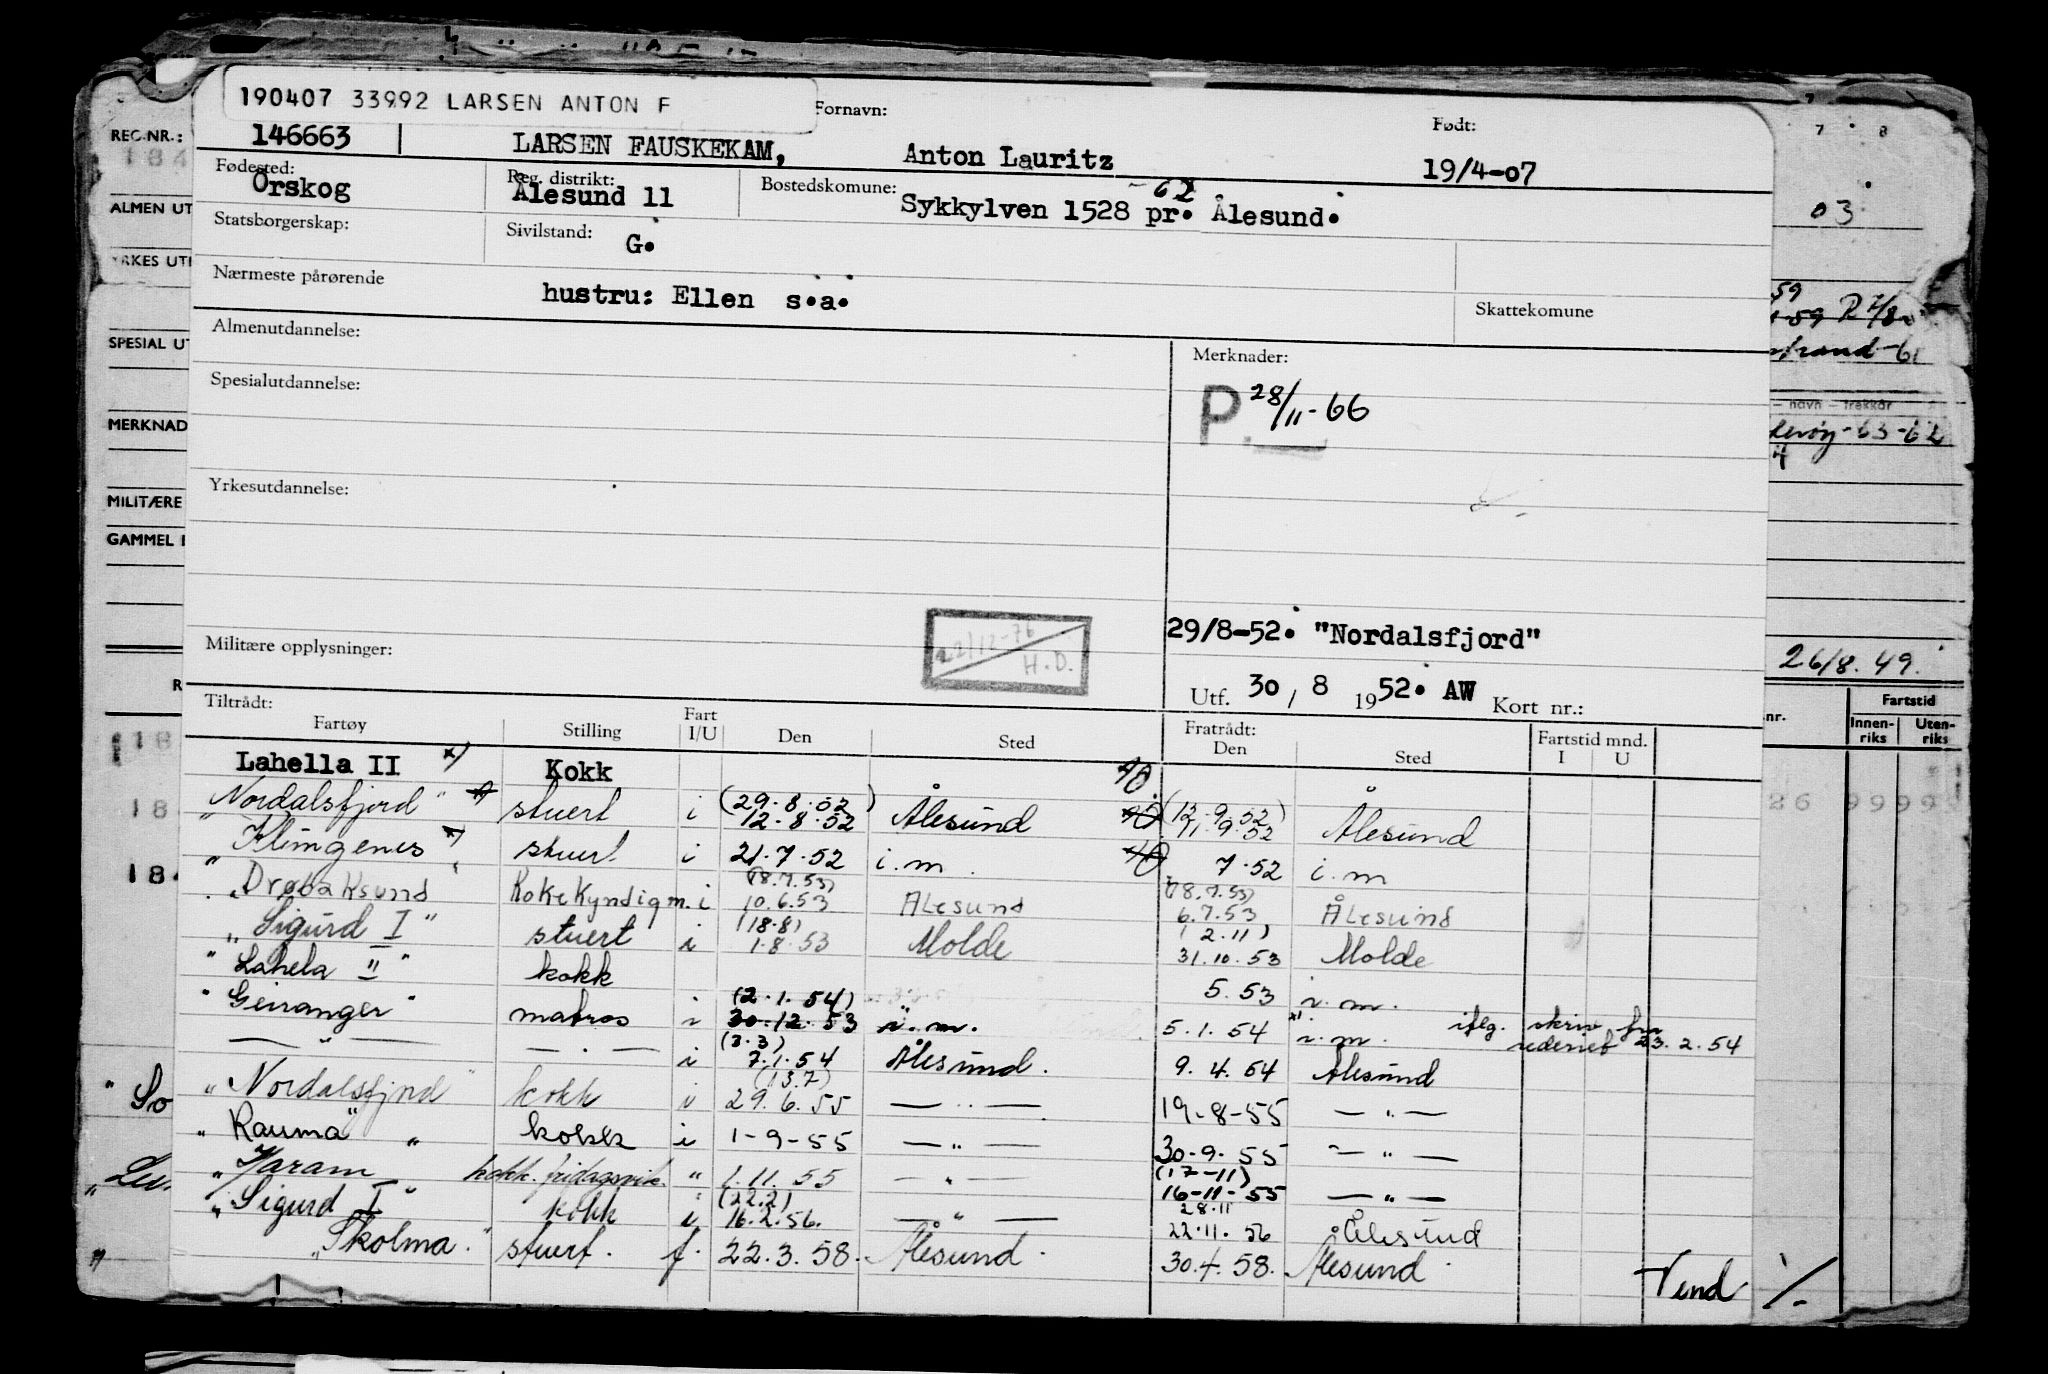 190407 33992 LARSEN ANTON F
Fornavn: Født:
REG.NR.: 146663 LARSEN FAUSKEKAM, Anton Lauritz 19/4-07
Fødested: Reg. distrikt: Bostedskomune: -62
Ørskog Ålesund 11 Sykkylven 1528 pr. Ålesund.
Statsborgerskap: Sivilstand: G.
Nærmeste pårørende hustru: Ellen s.a.
Skattekomune
Almenutdannelse:
Merknader:
P. 28/11-66
Spesialutdannelse:
Yrkesutdannelse:
22/12-76
H.D.
29/8-52. "Nordalsfjord"
Militære opplysninger:
Utf. 30 / 8 1952. AW Kort nr.:
Tiltrådt: Fratrådt:
Fartøy Stilling Fart I/U Den Sted Den Sted Fartstid mnd. I U
Lahella II x) Kokk
"Nordalsfjord" stuert i (29.8.52) 12.8.52 Ålesund (12.9.52) 11.9.52 Ålesund
"Klingenes" x) stuert i 21.7.52 i.m. 7.52 i.m
"Drøbaksund Kokekyndig m. i (18.7.53) 10.6.53 Ålesund (18.7.53) 6.7.53 Ålesund
"Sigurd I" stuert i (18.8) 1.8.53 Molde (2.11) 31.10.53 Molde
"Lahela II" kokk 5.53 i.m.
"Geiranger" matros i (2.1.54) 30.12.53 i.m. 5.1.54 i.m. iflg. skriv fra rederiet 23.2.54
— " — — . — i (3.3) 7.1.54 Ålesund. 9.4.54 Ålesund
"Nordalsfjord" kokk i (13.7) 29.6.55 — " — 19-8-55 — " —
"Rauma" kokk i 1-9-55 — " — 30-9-55 — " —
"Haram" " 1.11.55 — " — (17-11) 16-11-55 — " —
"Sigurd I" kokk i (22.2) 16.2.56. — " — 28.11 22.11.56 Ålesund
"Skolma." stuert. f. 22.3.58. Ålesund. 30.4.58. Ålesund.
Vend ./.
ALMEN UT
YRKES UTD
SPESIAL UT
MERKNAD
MILITÆRE
GAMMEL
7 . 8
03
59
- navn - trekkår
-63-62
26/8.49.
nr. Fartstid
Innen-riks Uten-riks
26 9999